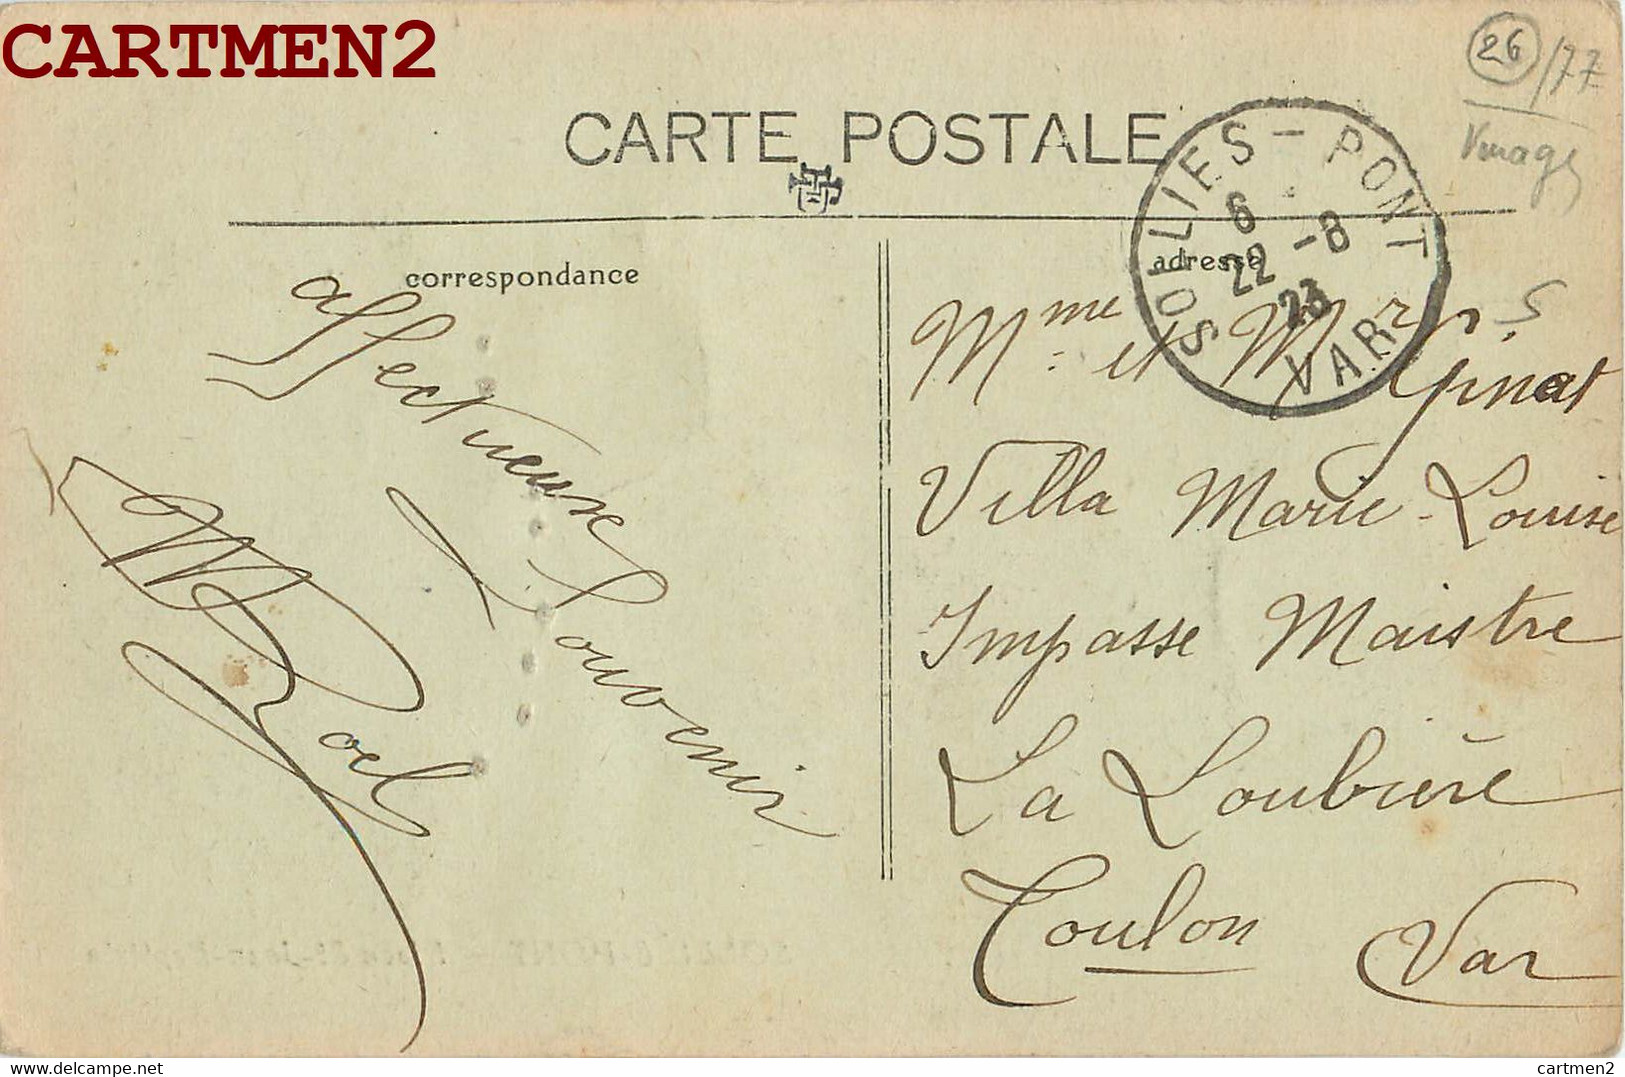 CARTMEN2
26/77
CARTE POSTALE
SOLLIES-PONT
6
22 -8
23
VAR
correspondance
adresse
affectueuse
Souvenir
Mme et Mr
Villa Marie-Louise
Impasse Maistre
La Loubière
Toulon Var
delcampe.net
cartmen2